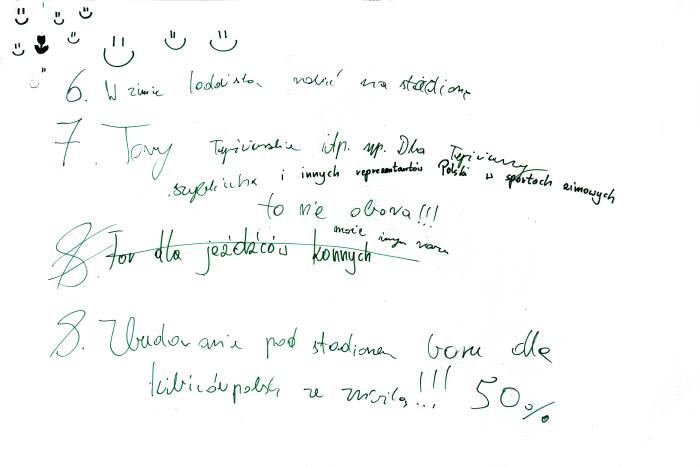 6. W zimie lodowisko robić na stadionie
7. Tory łyżwiarskie itp. np. Dla Łyżwiarzy
szybkich i innych reprezentantów Polski w sportach zimowych
to nie obora!!!
może innym razem
8. Tor dla jeźdźców konnych
8. Zbudowanie pod stadionem baru dla
kibiców polski ze zniżką!!! 50%